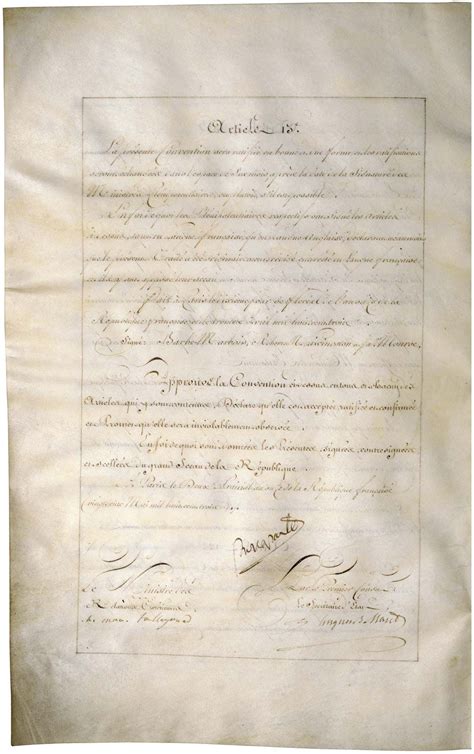 Article 13.e
La présente Convention sera ratifiée en bonne et due forme et les ratifications
seront échangées dans l'espace de Six mois après la date de la Signature des
Ministres Plénipotentiaires, ou plutôt, s'il est possible.
En foi de quoi les Plénipotentiaires respectifs ont Signé les articles
ci dessus, tant en Langue française qu'en Langue Anglaise, déclarant néanmoins
que le présent Traité a été originairement rédigé et arrêté en Langue française
et ils y ont apposé leur sceau
fait à Paris le dixième jour de floréal de l'an onze de la
République française et le trente Avril mil huit cent trois
Signé Barbé Marbois, Robert R. Livingston et Jas. Monroe.
Approuve la Convention ci dessus en tous et chacun des
Articles qui y sont contenus, Déclare qu'elle est acceptée ratifiée et confirmée
et Promet qu'elle sera inviolablement observée.
En foi de quoi sont données les Présentes, signées, contresignées
et scellées du grand Sceau de la République
à Paris le Deux Prairial an onze de la République française
mil huit cent trois
Bonaparte
Le Ministre des Par le Premier Consul
Relations Extérieures Le Secrétaire d'Etat
Ch. Mau. Talleyrand Hugues B. Maret